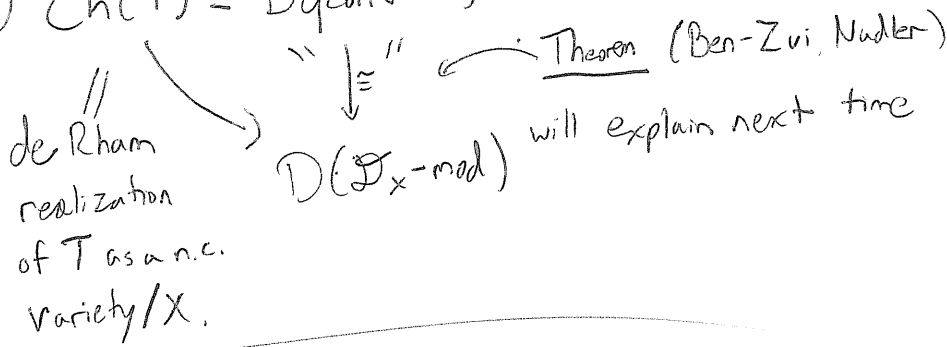 Ch(T)
" ↓≅ " Theorem (Ben-Zvi, Nadler)
will explain next time
D(𝒟_X-mod)
//
de Rham
realization
of T as a n.c.
variety/X.